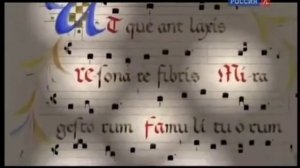 РОССИЯ К
UT que ant laxis
re sona re fibris Mi ra
gesto rum famu li tu o rum